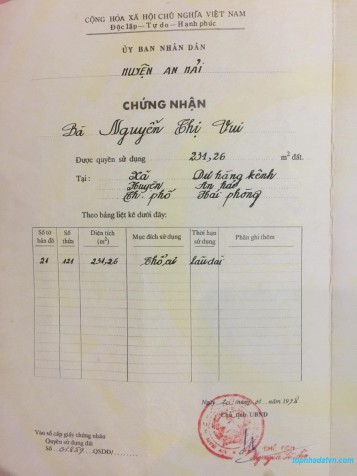 CỘNG HÒA XÃ HỘI CHỦ NGHĨA VIỆT NAM
Độc lập - Tự do - Hạnh phúc
ỦY BAN NHÂN DÂN
HUYỆN AN HẢI
CHỨNG NHẬN
Bà Nguyễn Thị Vui
Được quyền sử dụng 231,26 m² đất.
Tại: Xã Dư hàng kênh
Huyện An hải
Th. phố Hải phòng
Theo bảng liệt kê dưới đây:
Số tờ bản đồ Số thửa Diện tích (m²) Mục đích sử dụng Thời hạn sử dụng Phần ghi thêm
21 121 231,26 Thổ cư Lâu dài
Ngày tháng năm 1998
Chủ tịch UBND
Vào sổ cấp giấy chứng nhận
Quyền sử dụng đất
Số QSDĐ/
topnhadatvn.com